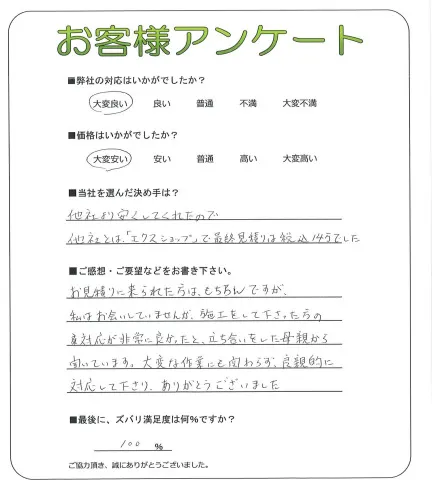 お客様アンケート
■弊社の対応はいかがでしたか？
大変良い 良い 普通 不満 大変不満
■価格はいかがでしたか？
大変安い 安い 普通 高い 大変高い
■当社を選んだ決め手は？
他社より安くしてくれたので
他社とは、「エクスショップ」で最終見積りは税込14万でした
■ご感想・ご要望などをお書き下さい。
お見積りに来られた方は、もちろんですが、
私はお会いしていませんが、施工をして下さった方の
対応が非常に良かったと、立ち合いをした母親から
聞いています。大変な作業にも関わらず、良親的に
対応して下さり、ありがとうございました
■最後に、ズバリ満足度は何%ですか？
100 %
ご協力頂き、誠にありがとうございました。